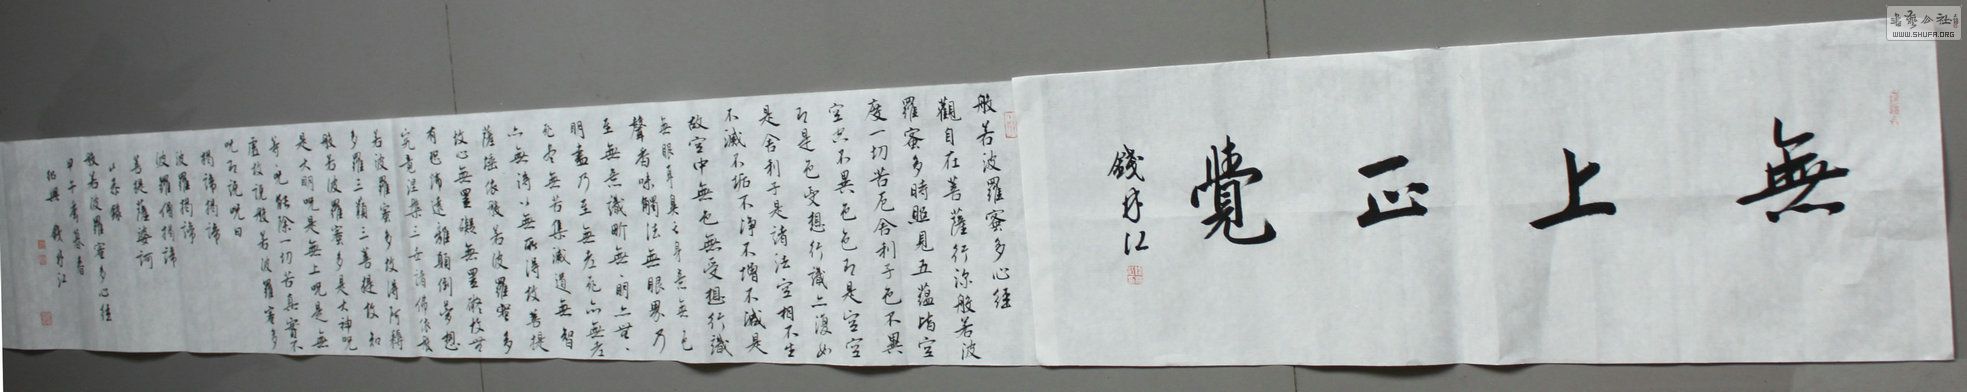 無上正覺
錢江
般若波羅蜜多心經
觀自在菩薩行深般若波
羅蜜多時照見五蘊皆空
度一切苦厄舍利子色不異
空空不異色色即是空空
即是色受想行識亦復如
是舍利子是諸法空相不生
不滅不垢不淨不增不減是
故空中無色無受想行識
無眼耳鼻舌身意無色
聲香味觸法無眼界乃
至無意識界無、明亦無、
明盡乃至無老死亦無老
死盡無苦集滅道無智
亦無得以無所得故菩提
薩埵依般若波羅蜜多
故心無罣礙無罣礙故無
有恐怖遠離顛倒夢想
究竟涅槃三世諸佛依般
若波羅蜜多故得阿耨
多羅三藐三菩提故知
般若波羅蜜多是大神咒
是大明咒是無上咒是無
等、咒能除一切苦真實不
虛故說般若波羅蜜多
咒即說咒曰
揭諦揭諦
波羅揭諦
波羅僧揭諦
菩提薩婆訶
般若波羅蜜多心經
甲午暮春
紹興 錢江
书艺公社
WWW.SHUFA.ORG